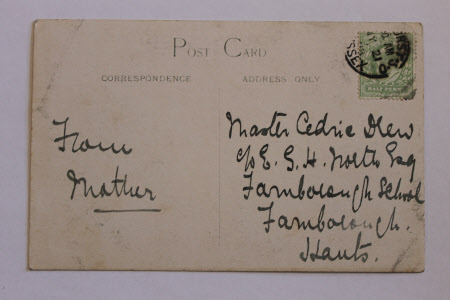 POST CARD
CORRESPONDENCE
ADDRESS ONLY
HALF PENNY
From
Mother
Master Cedric Drew
c/o E. G. H. North Esq
Farnborough School
Farnborough.
Hants.